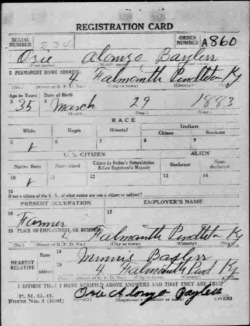 REGISTRATION CARD
SERIAL NUMBER 234 ORDER NUMBER A860
Osie Alonzo Bayless
2 PERMANENT HOME ADDRESS:
4 Falmouth Pendleton Ky
Age in Years Date of Birth
35 March 29 1883
RACE
White Negro Oriental Indian
Citizen Noncitizen
U. S. CITIZEN ALIEN
Native Born Naturalized Citizen by Father's Naturalization Before Registrant's Majority Declarant Non-declarant
If not a citizen of the U. S., of what nation are you a citizen or subject?
PRESENT OCCUPATION EMPLOYER'S NAME
Farmer
PLACE OF EMPLOYMENT OR BUSINESS:
Falmouth Pendleton Ky
NEAREST RELATIVE Minnie Bayless
4 Falmouth Pend Ky
I AFFIRM THAT I HAVE VERIFIED ABOVE ANSWERS AND THAT THEY ARE TRUE
P. M. G. O.
Form No. 1 (Red) Osie Alonzo Bayless